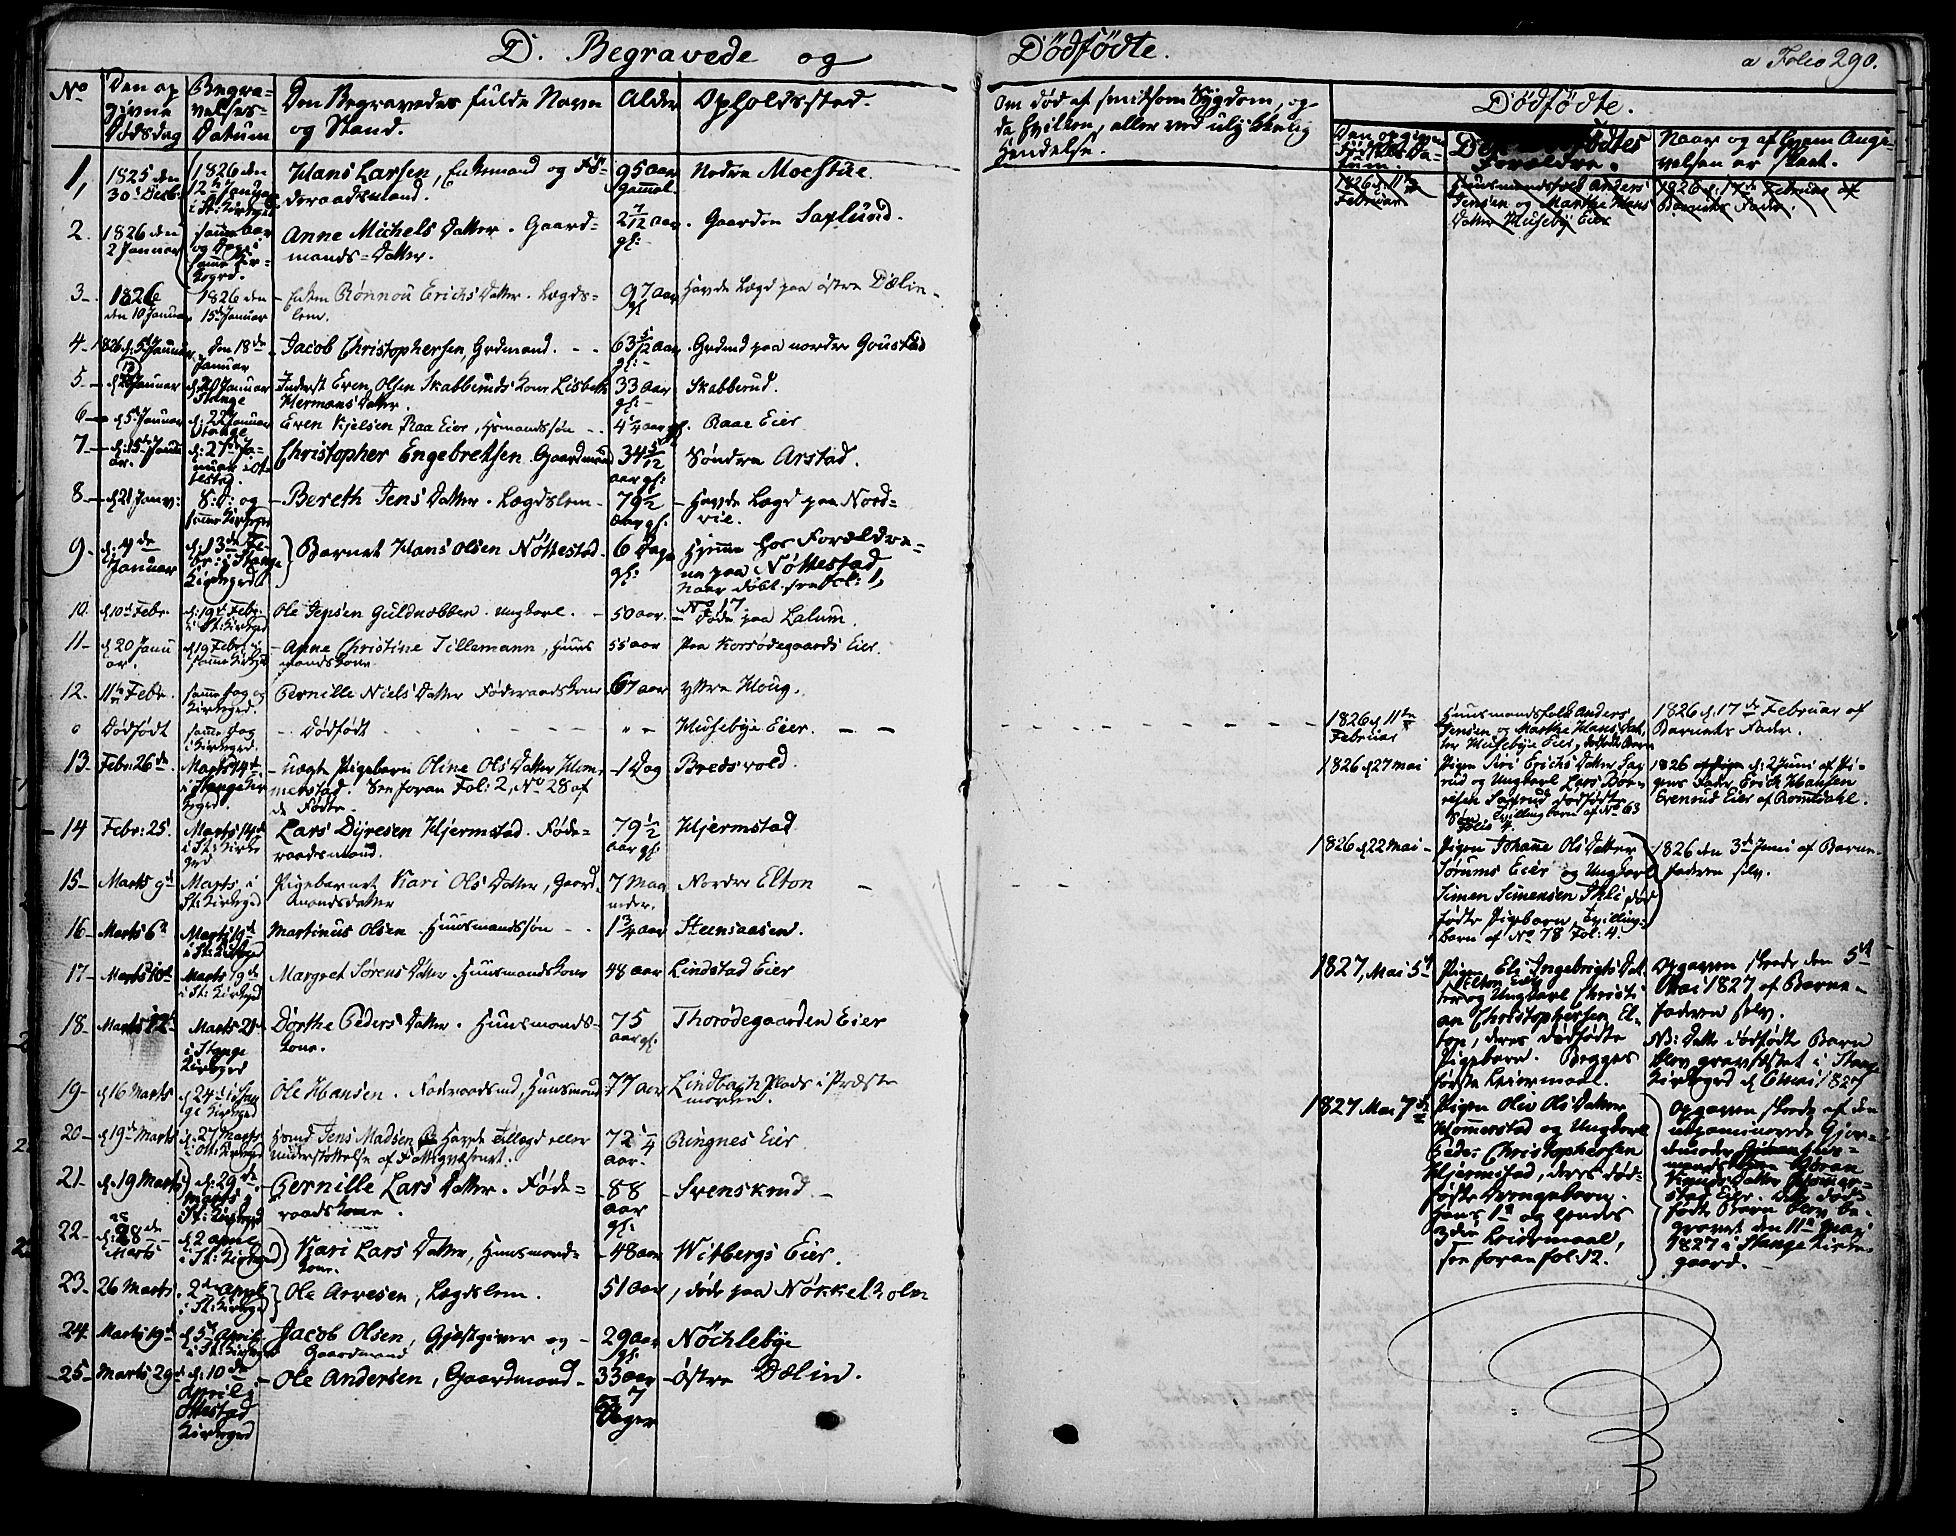 D. Begravede og Dödfödte.
a Folio 290.
No
Den op
givne
Dödsdag
Begra-
velses-
Datum
Den Begravedes fulde Navn
og Stand.
Alder
Opholdssted.
Om död af smitsom Sygdom, og
da hvilken, eller ved ulykkelig
Hendelse.
Dödfödte.
Forældre.
Naar og af hvem Angi-
velsen er skeet.
1,
1825 den
30te Decbr
1826 den
12te Januar
i St: Kirkegrd
Hans Larsen, Enkemand og Fö-
deraadsmand.
95 aar
gammel
Nedre Moestue.
1826 d. 11te
Februar
Huusmandsfolk Anders
Jensen og Marthe Hans
Datter Huseby Eier
1826 d. 17de Februar af
Barnets Fader.
2.
1826 den
2 Januar
samme Kir-
kegrd.
Anne Michels Datter. Gaard-
mands-Datter.
2 7/12 aar
gl:
Gaarden Saxlund.
3-
1826
den 10 Januar
1826 den
15de Januar
Enken Rönnou Erichs Datter. Lægds-
lem.
97 aar
gl
Havde Lægd paa östre Dælin-
4-
1826 d. 5te Januar
den 18de
Januar
Jacob Christophersen, Grdmand.
63 5/12 aar
gl:
Grdmd paa nordre Goustad
5-
Januar
d. 20 Januar
Stange
Inderst Even Olsen Skabberuds Kone Lisbeth
Hermans Datter.
33 aar
gl:
Skabberud.
6-
d. 5te Januar
d. 22 Januar
Stange
Even Kjelsen, Raa Eier, Hsmandssön
4 1/4 aar gl.
Raae Eier
7-
d: 15de Janu
ar.
d: 27de Ja-
nuar i Ot-
testad.
Christopher Engebretsen. Gaardmand
34 5/12
aar gl:
Söndre Arstad.
8-
d 21 Janv:
S: D: og
samme Kirkegrd
Bereth Jens Datter. Lægdslem.
79 1/2
aar gl.
Havde Lægd paa Nord-
vie.
9.
Januar
d. 13de Fe-
br: i Stange
Kirkegrd
Barnet Hans Olsen Nöttestad.
6 Dage
gl:
Hjemme hos Forældre-
ne paa Nöttestad
Naar döbt, see Fol: 1,
No 17
10.
d 10de Febr.
d: 19de Febr.
i St: Kirkegrd
Ole Jensen Guldnæbben. Ungkarl.
50 aar.
Döde paa Lalum.
11-
d 20 Janu
ar.
d 19 Febr. i
samme Kirkegrd
Anne Christine Tillemann, Huus
mandskone.
55 aar
Paa Korsödegaards Eier.
12-
11te Febr.
samme Dag og
Kirkegrd.
Pernille Niels Datter Föderaadskone
67 aar
Yttre Houg.
o
Dödfödt
samme Dag
i Kirkegrd.
Dödfödt
Musebye Eier.
1826 d 11te
Februar
Huusmandsfolk Anders
Jensen og Marthe Hans Dat-
ter Musebye Eier, dödfödt Barn
1826 d. 17de Februar af
Barnets Fader.
13-
Febr: 26de
Marts 14de
i Stange Kir
kegrd.
uægte Pigebarn Oline Ols Datter Hom-
merstad. See foran Fol: 2, No 28 af
de Födte.
1 Dag
Bredsvold.
1826 d 27 Mai
Pigen Siri Erichs Datter Sax
rud og Ungkarl Lars Bör-
resen Saxrud dödfödte
See Tvillingbarn af No 63
Folio 4.
1826 d: 2 Juni af Pi-
gens Fader Erich Hansen
Evenrud Eier af Romedahl.
14
Febr: 25.
Marts 14de
i St: Kirke
grd
Lars Dyresen Hjermstad. Föde-
raadsmand.
79 1/2
aar gl.
Hjermstad
1826 d 22 Mai
Pigen Johanne Ols Datter
Sörums Eier og Ungkarl
Simen Simensen död
födte Pigebarn, Tvilling-
barn af No 78 Fol. 4.
1826 den 3de Juni af Barne-
faderen selv.
15-
Marts 9de
Marts, i
St: Kirkegrd
Pigebarnet Kari Ols Datter, Gaard
mandsdatter
7 Maa
neder.
Nordre Elton
16-
Marts 6te
i St: Kirkegrd
Martinus Olsen Huusmandssön
1 3/4 aar
Steensaasen.
17-
Marts 10de
Marts 19de
i St: Kirkegrd
Margret Sörens Datter Huusmandskone
48 aar
Lindstad Eier
1827, Mai 5te
Pigen Eli Ingebrigts Dat
Elton Eier
ter og Ungkarl Christi
an Christophersen El-
ton, deres dödfödte
Pigebarn. Begges
förste Leiermaal.
Opgaven skeede den 5te
Mai 1827 af Barne-
faderen selv.
NB: Dette dödfödte Barn
blev gravfæstet i Stange
Kirkegrd d. 6 Mai 1827
18.
Marts 12te
Marts 21de
i Stange
Kirkegrd
Dorthe Peders Datter. Huusmands-
kone.
75
aar gl.
Thorödegaarden Eier
19-
d 16 Marts
d 24de i Stan
ge Kirkegrd
Ole Hansen. Föderaadsmd, Huusmand
77 aar
Lindbach Plads i Præste
marken.
1827 Mai 7de
Pigen Oliv Ols Datter
Hommerstad og Ungkarl
Peder Christophersen
Hjermstad, deres död-
födte Drengebarn.
Hans 1te og hendes
3die Leiermaal,
see foran fol 12.
Opgaven skeede af den
examinerede Gjor-
demoder
Stad Eier. Dette död-
födte Barn blev be-
gravet den 11te Mai
1827 i Stange Kirke-
gaard.
20-
d 19de Marts
d. 27 Marts
i Ott: Kirkegrd
Hsmd Jens Madsen, Havde Tillægd eller
Understöttelse af Fattigvæsenet.
72 1/4
aar.
Ringnes Eier
21-
d. 19 Marts
d: 29de
Marts i
St: Kirkegrd
Pernille Lars Datter. Föde-
raadskone.
88
aar
gl:
Svenskrud.
22-
d. 28de
Marts
d 2 April
i St: Kirkegrd
Kari Lars Datter, Huusmands
kone.
48 aar
Witbergs Eier.
23-
26 Marts.
2den April
i St: Kirkegrd
Ole Arvesen, Lægdslem.
51 aar
, döde paa Nökkelholm
24-
Marts 19de
d 5te April
i St: Kirkegrd
Jacob Olsen, Gjestgiver og
Gaardmand
29 aar
gl:
Nöchlebye
25-
Marts 29de
d: 10de
April i
Ottestad
Kirkegrd
Ole Andersen, Gaardmand
33 aar
7
Dager
Östre Dælin.